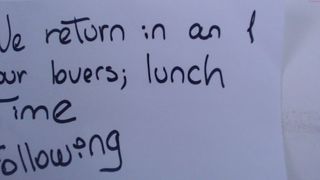 We return in an 1
our lovers; lunch
Time
Following